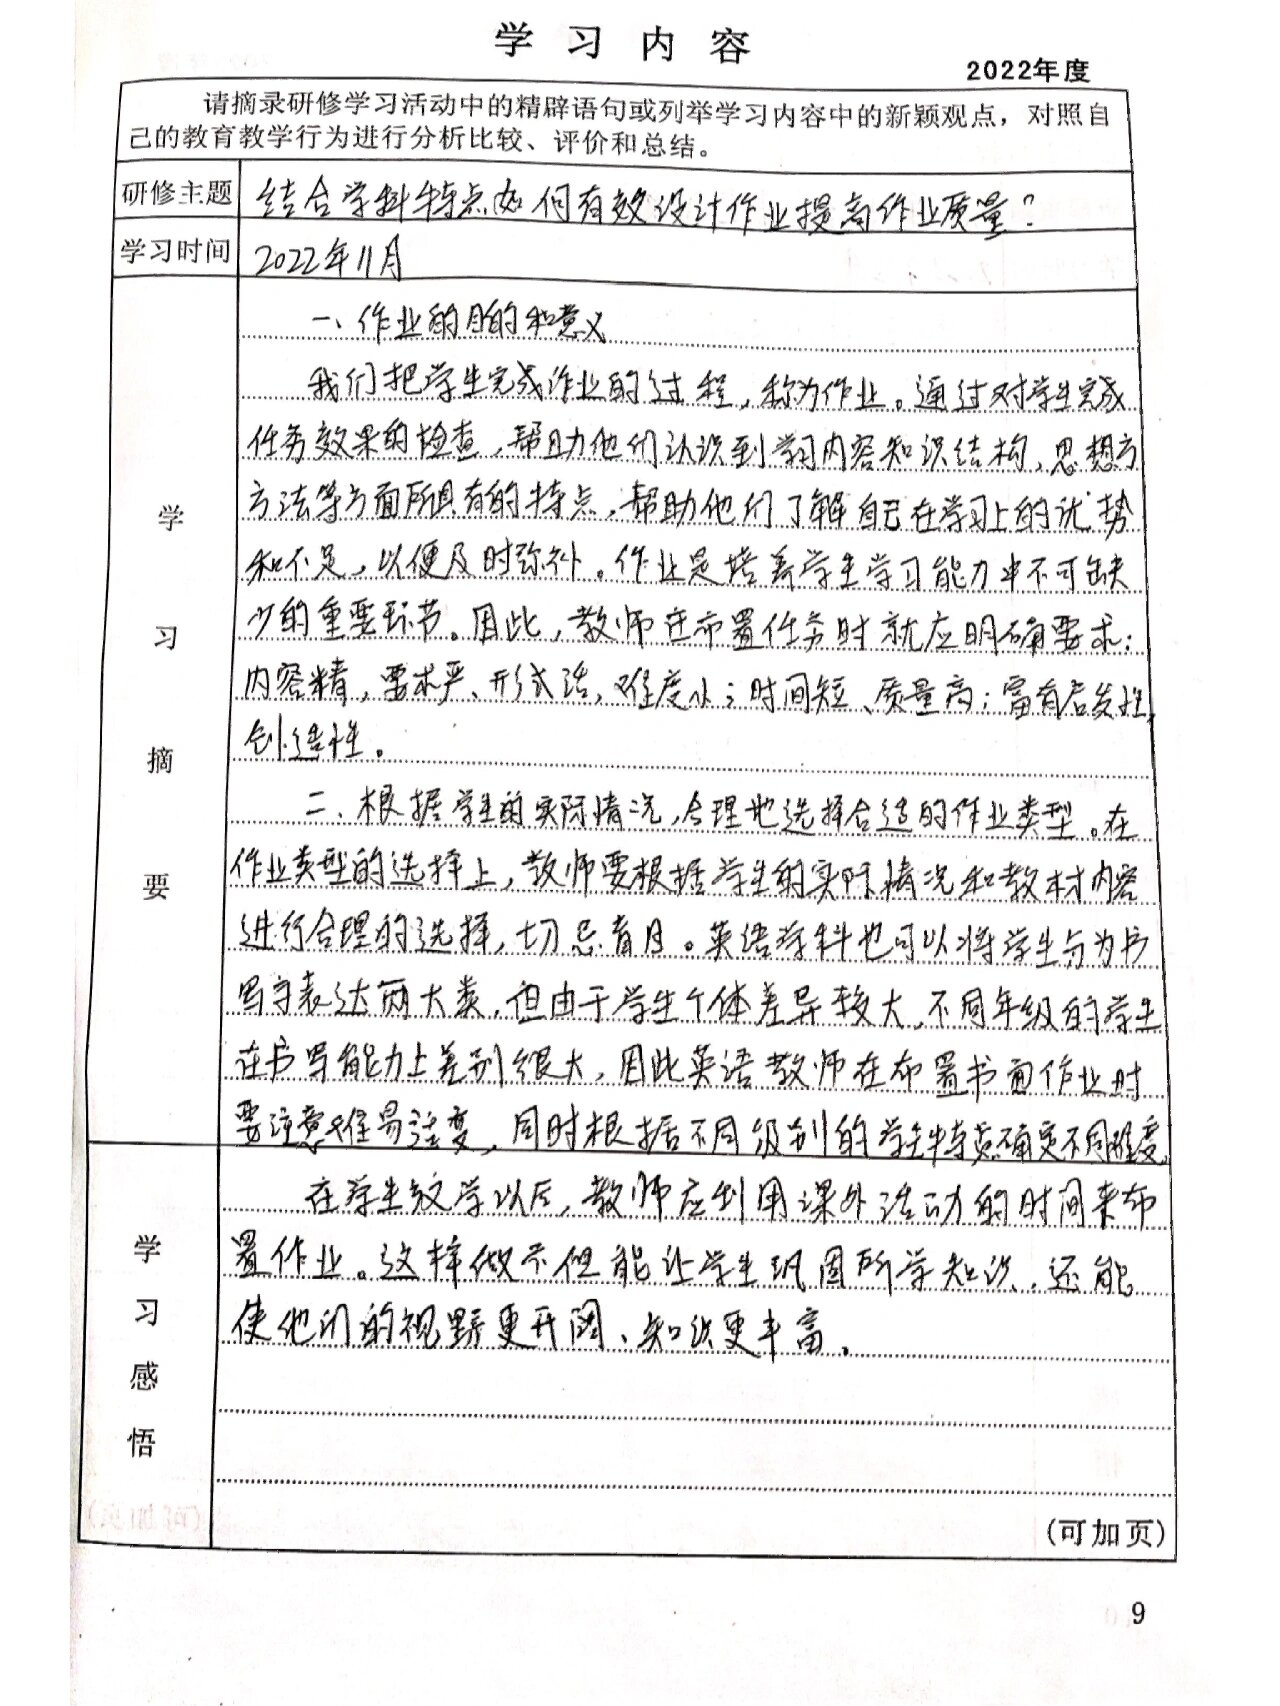 学习内容
2022年度
请摘录研修学习活动中的精辟语句或列举学习内容中的新颖观点，对照自
己的教育教学行为进行分析比较、评价和总结。
研修主题 结合学科特点如何有效设计作业提高作业质量?
学习时间 2022年11月
学习摘要
一、作业的目的和意义
我们把学生完成作业的过程，称为作业。通过对学生完成
任务效果的检查，帮助他们认识到学习内容知识结构、思想方
方法等方面所具有的特点，帮助他们了解自己在学习上的优势
和不足，以便及时弥补。作业是培养学生学习能力中不可缺
少的重要环节。因此，教师在布置任务时就应明确要求：
内容精，要求严、形式活，难度小；时间短、质量高；富有启发性，
创造性。
二、根据学生的实际情况，合理地选择合适的作业类型。在
作业类型的选择上，教师要根据学生的实际情况和教材内容
进行合理的选择，切忌盲目。英语学科也可以将学生分为书
写与表达两大类，但由于学生个体差异较大，不同年级的学生
在书写能力上差别很大，因此英语教师在布置书面作业时
要注意难易适度，同时根据不同级别的学生特点确定不同难度。
学习感悟
在学生放学以后，教师应利用课外活动的时间来布
置作业。这样做不但能让学生巩固所学知识，还能
使他们的视野更开阔、知识更丰富。
(可加页)
9